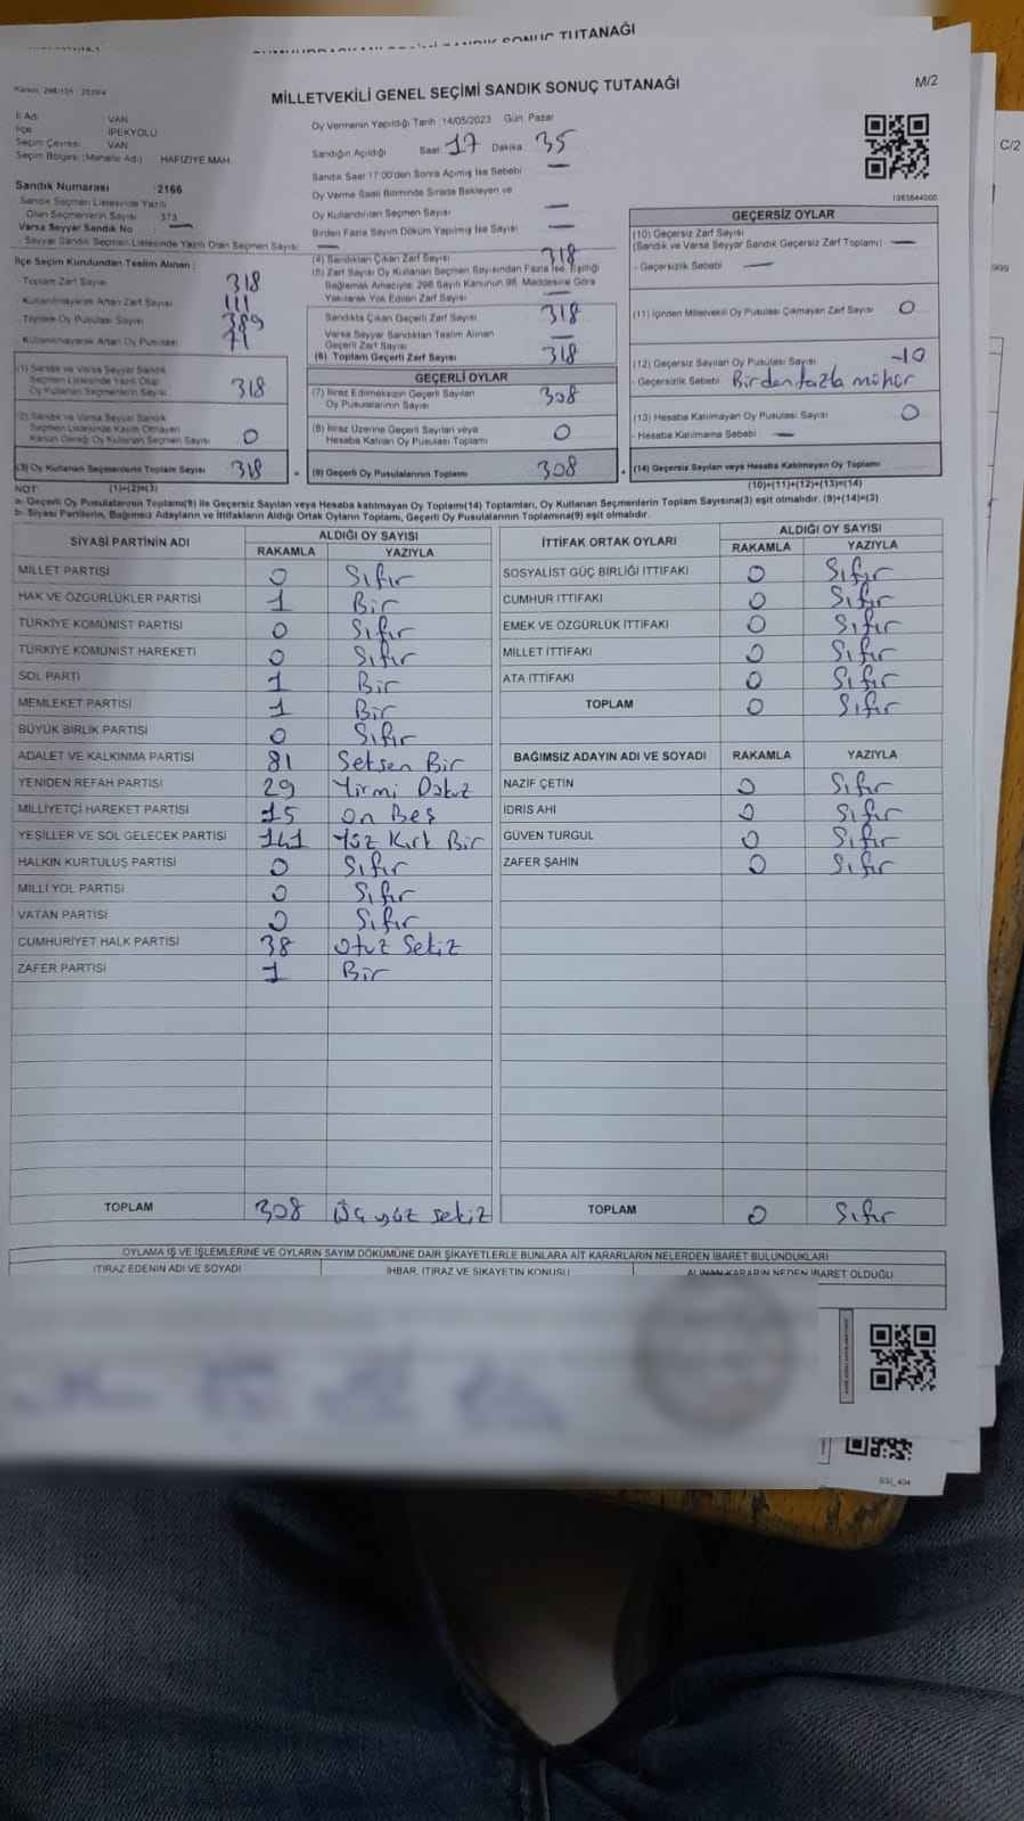 SANDIK SONUÇ TUTANAĞI
MİLLETVEKİLİ GENEL SEÇİMİ SANDIK SONUÇ TUTANAĞI
M/2
C/2
İl Adı : VAN
İlçe : İPEKYOLU
Seçim Çevresi : VAN
Seçim Bölgesi (Mahalle Adı) : HAFIZIYE MAH.
Sandık Numarası : 2166
Sandık Seçmen Listesinde Yazılı
Olan Seçmenlerin Sayısı : 373
Varsa Seyyar Sandık No —
Seyyar Sandık Seçmen Listesinde Yazılı Olan Seçmen Sayısı —
İlçe Seçim Kurulundan Teslim Alınan :
- Toplam Zarf Sayısı 318
- Kullanılmayarak Artan Zarf Sayısı 111
- Toplam Oy Pusulası Sayısı
- Kullanılmayarak Artan Oy Pusulası
(1) Sandık ve Varsa Seyyar Sandık
Seçmen Listesinde Yazılı Olup
Oy Kullanan Seçmenlerin Sayısı 318
(2) Sandık ve Varsa Seyyar Sandık
Seçmen Listesinde Kaydı Olmayan
Kanun Gereği Oy Kullanan Seçmen Sayısı 0
(3) Oy Kullanan Seçmenlerin Toplam Sayısı 318
(1)+(2)=(3)
Oy Vermenin Yapıldığı Tarih :14/05/2023 Gün: Pazar
Sandığın Açıldığı Saat 17 Dakika 35
Sandık Saat 17:00'den Sonra Açılmış İse Sebebi —
Oy Verme Saati Bitiminde Sırada Bekleyen ve
Oy Kullandırılan Seçmen Sayısı —
Birden Fazla Sayım Döküm Yapılmış İse Sayısı —
(4) Sandıktan Çıkan Zarf Sayısı 318
(5) Zarf Sayısı Oy Kullanan Seçmen Sayısından Fazla İse, Eşitliği
Sağlamak Amacıyla; 298 Sayılı Kanunun 98. Maddesine Göre
Yakılarak Yok Edilen Zarf Sayısı —
Sandıkta Çıkan Geçerli Zarf Sayısı 318
Varsa Seyyar Sandıktan Teslim Alınan
Geçerli Zarf Sayısı —
(6) Toplam Geçerli Zarf Sayısı 318
GEÇERLİ OYLAR
(7) İtiraz Edilmeksizin Geçerli Sayılan
Oy Pusulalarının Sayısı 308
(8) İtiraz Üzerine Geçerli Sayılan veya
Hesaba Katılan Oy Pusulası Toplamı 0
(9) Geçerli Oy Pusulalarının Toplamı 308
1383644000
GEÇERSİZ OYLAR
(10) Geçersiz Zarf Sayısı
(Sandık ve Varsa Seyyar Sandık Geçersiz Zarf Toplamı) —
- Geçersizlik Sebebi —
(11) İçinden Milletvekili Oy Pusulası Çıkmayan Zarf Sayısı 0
(12) Geçersiz Sayılan Oy Pusulası Sayısı -10
- Geçersizlik Sebebi Birden fazla mühür
(13) Hesaba Katılmayan Oy Pusulası Sayısı 0
- Hesaba Katılmama Sebebi —
(14) Geçersiz Sayılan veya Hesaba Katılmayan Oy Toplamı
(10)+(11)+(12)+(13)=(14)
NOT:
a- Geçerli Oy Pusulalarının Toplamı(9) ile Geçersiz Sayılan veya Hesaba katılmayan Oy Toplamı(14) Toplamları, Oy Kullanan Seçmenlerin Toplam Sayısına(3) eşit olmalıdır. (9)+(14)=(3)
b- Siyasi Partilerin, Bağımsız Adayların ve İttifakların Aldığı Ortak Oyların Toplamı, Geçerli Oy Pusulalarının Toplamına(9) eşit olmalıdır.
SİYASİ PARTİNİN ADI ALDIĞI OY SAYISI
RAKAMLA YAZIYLA
MİLLET PARTİSİ 0 Sıfır
HAK VE ÖZGÜRLÜKLER PARTİSİ 1 Bir
TÜRKİYE KOMÜNİST PARTİSİ 0 Sıfır
TÜRKİYE KOMÜNİST HAREKETİ 0 Sıfır
SOL PARTİ 1 Bir
MEMLEKET PARTİSİ 1 Bir
BÜYÜK BİRLİK PARTİSİ 0 Sıfır
ADALET VE KALKINMA PARTİSİ 81 Seksen Bir
YENİDEN REFAH PARTİSİ 29 Yirmi Dokuz
MİLLİYETÇİ HAREKET PARTİSİ 15 On Beş
YEŞİLLER VE SOL GELECEK PARTİSİ 141 Yüz Kırk Bir
HALKIN KURTULUŞ PARTİSİ 0 Sıfır
MİLLİ YOL PARTİSİ 0 Sıfır
VATAN PARTİSİ 0 Sıfır
CUMHURİYET HALK PARTİSİ 38 Otuz Sekiz
ZAFER PARTİSİ 1 Bir
TOPLAM 308 Üç yüz sekiz
İTTİFAK ORTAK OYLARI ALDIĞI OY SAYISI
RAKAMLA YAZIYLA
SOSYALİST GÜÇ BİRLİĞİ İTTİFAKI 0 Sıfır
CUMHUR İTTİFAKI 0 Sıfır
EMEK VE ÖZGÜRLÜK İTTİFAKI 0 Sıfır
MİLLET İTTİFAKI 0 Sıfır
ATA İTTİFAKI 0 Sıfır
TOPLAM 0 Sıfır
BAĞIMSIZ ADAYIN ADI VE SOYADI RAKAMLA YAZIYLA
NAZİF ÇETİN 0 Sıfır
İDRİS AHİ 0 Sıfır
GÜVEN TURGUL 0 Sıfır
ZAFER ŞAHİN 0 Sıfır
TOPLAM 0 Sıfır
OYLAMA İŞ VE İŞLEMLERİNE VE OYLARIN SAYIM DÖKÜMÜNE DAİR ŞİKAYETLERLE BUNLARA AİT KARARLARIN NELERDEN İBARET BULUNDUKLARI
İTİRAZ EDENİN ADI VE SOYADI İHBAR, İTİRAZ VE ŞİKAYETİN KONUSU ALINAN KARARIN NEDEN İBARET OLDUĞU